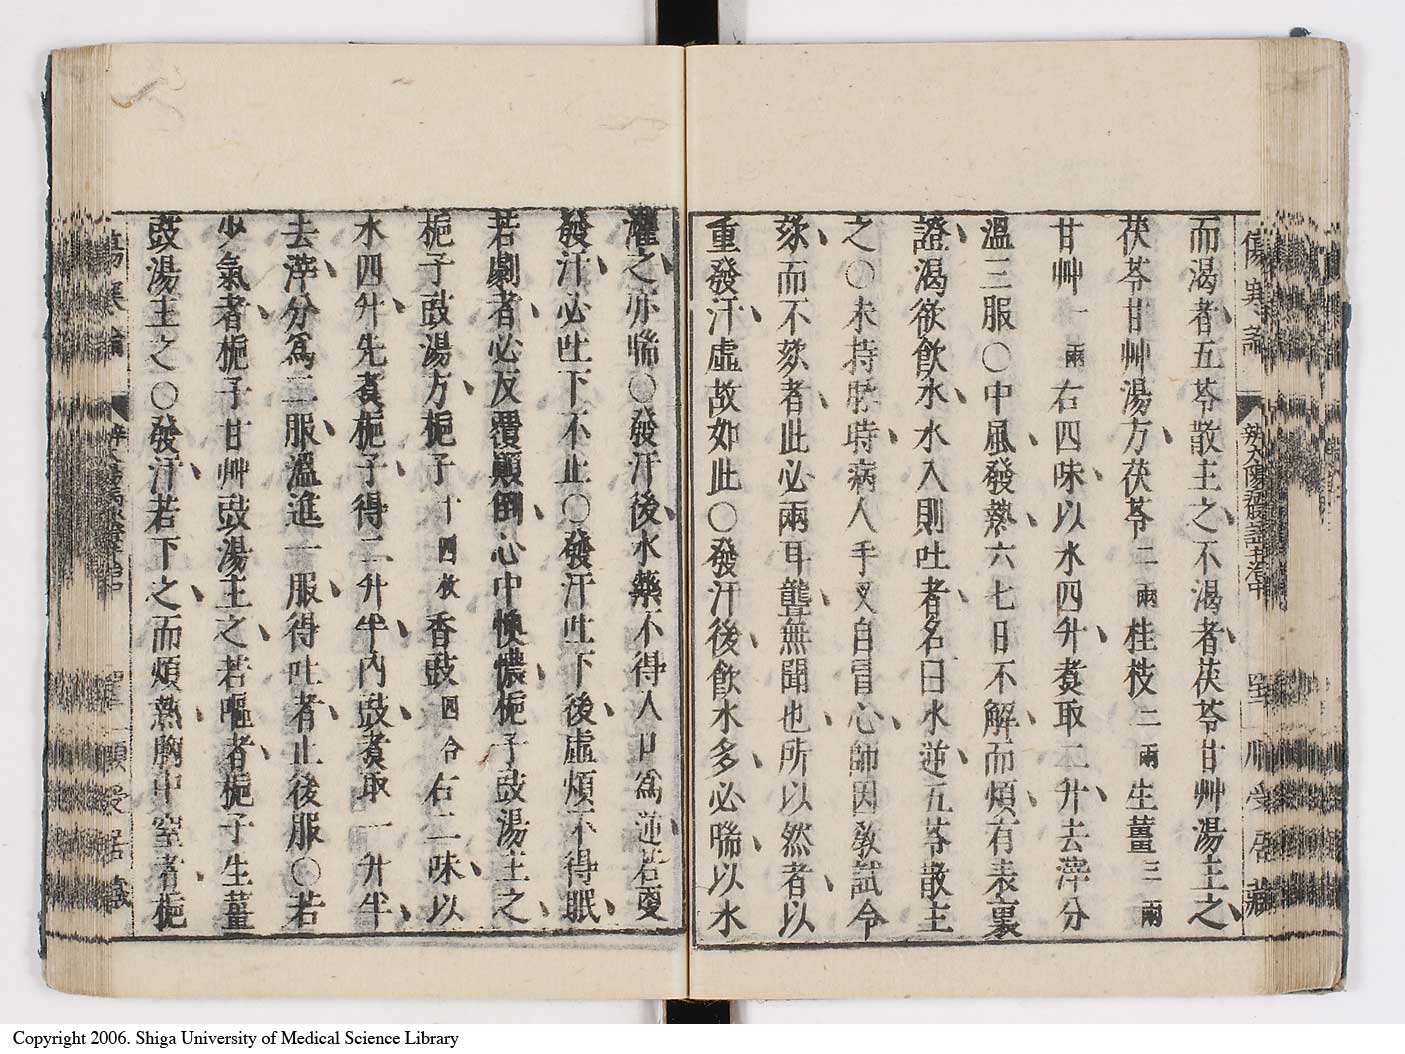 傷寒論 辨太陽病脈證并治中
而渴者五苓散主之不渴者茯苓甘艸湯主之
茯苓甘艸湯方茯苓二兩桂枝二兩生薑三兩
甘艸一兩右四味以水四升煑取二升去滓分
溫三服○中風發熱六七日不解而煩有表裏
證渴欲飲水水入則吐者名曰水逆五苓散主
之○未持脉時病人手叉自冒心師因敎試令
欬而不欬者此必兩耳聾無聞也所以然者以
重發汗虛故如此○發汗後飲水多必喘以水
灌之亦喘○發汗後水藥不得入口爲逆若更
發汗必吐下不止○發汗吐下後虛煩不得眠
若劇者必反覆顚倒心中懊憹梔子豉湯主之
梔子豉湯方梔子十四枚香豉四合右二味以
水四升先煑梔子得二升半內豉煑取一升半
去滓分爲二服溫進一服得吐者止後服○若
少氣者梔子甘艸豉湯主之若嘔者梔子生薑
豉湯主之○發汗若下之而煩熱胸中窒者梔
傷寒論
Copyright 2006. Shiga University of Medical Science Library